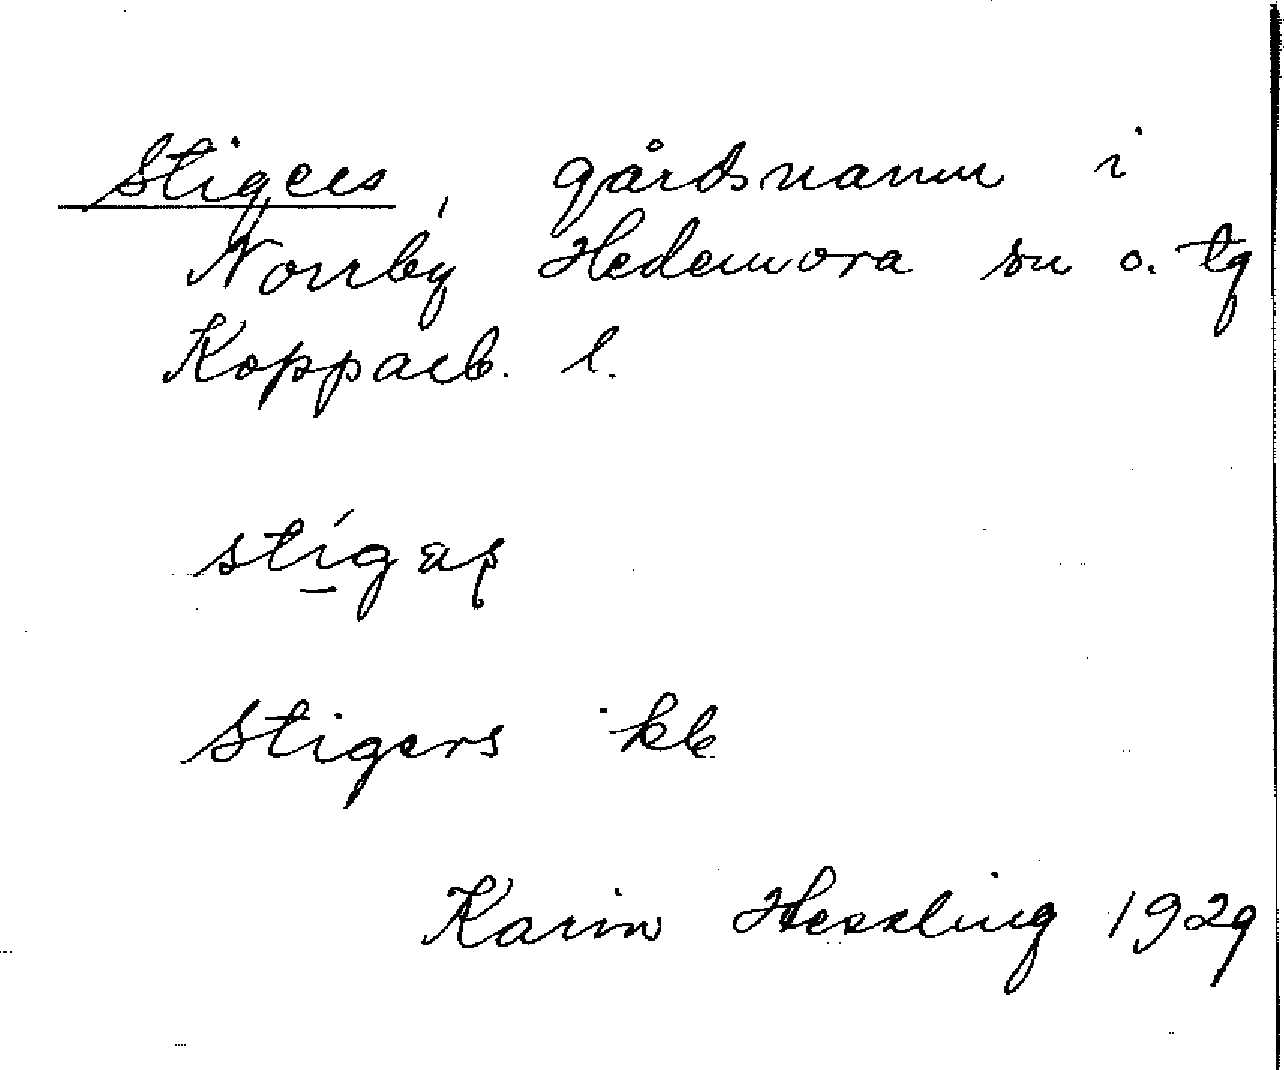 Stigers, gårdsnamn i
Norrby Hedemora sn o. tg
Kopparb. l.
Stigers kb
Karin Hessling 1929